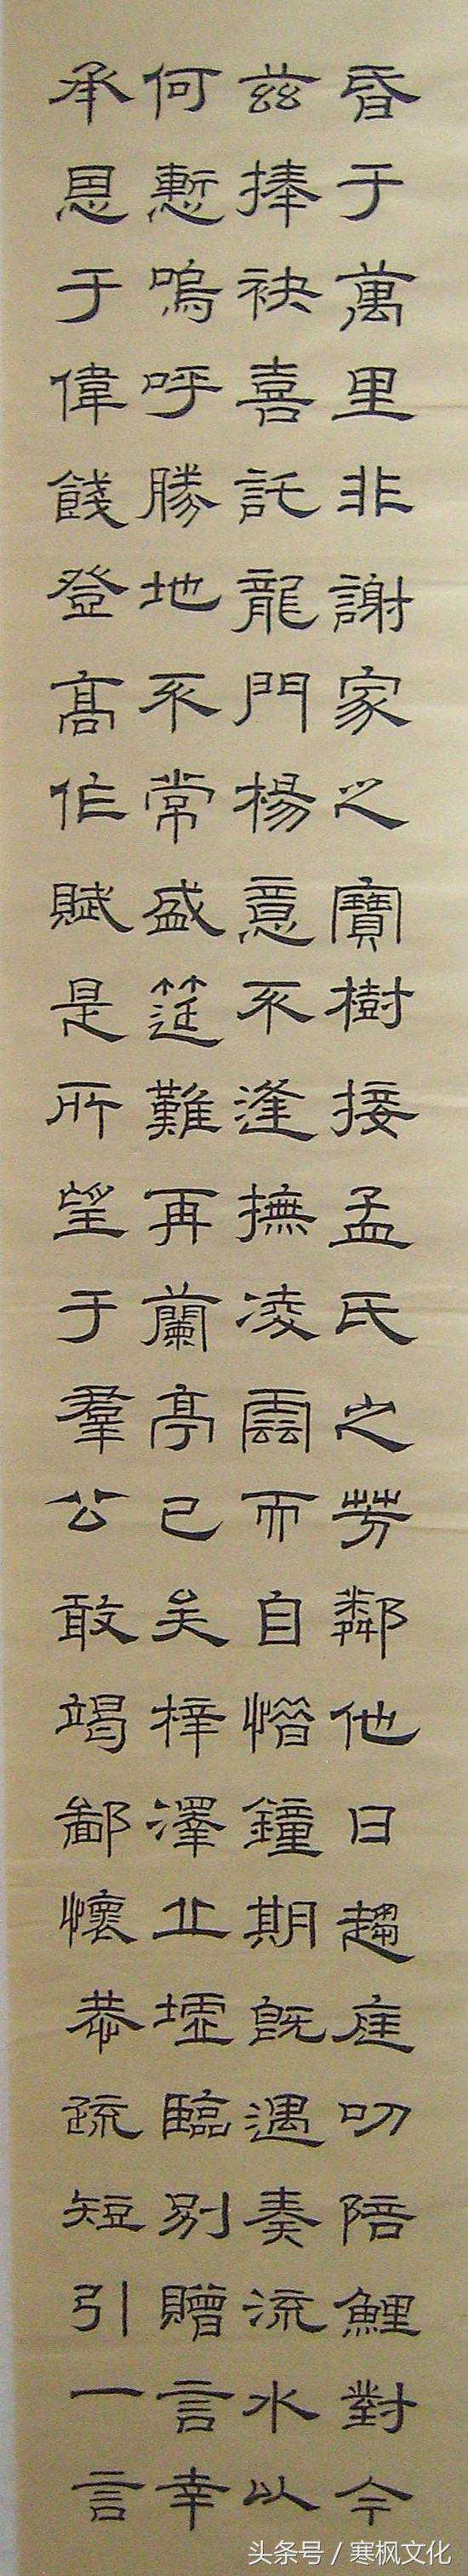 昏于萬里非謝家之寶樹接孟氏之芳鄰他日趨庭叨陪鯉對今
茲捧袂喜託龍門楊意不逢撫凌雲而自惜鐘期既遇奏流水以
何慙嗚呼勝地不常盛筵難再蘭亭已矣梓澤丘墟臨別贈言幸
承恩于偉餞登高作賦是所望于羣公敢竭鄙懷恭疏短引一言
头条号 / 寒枫文化